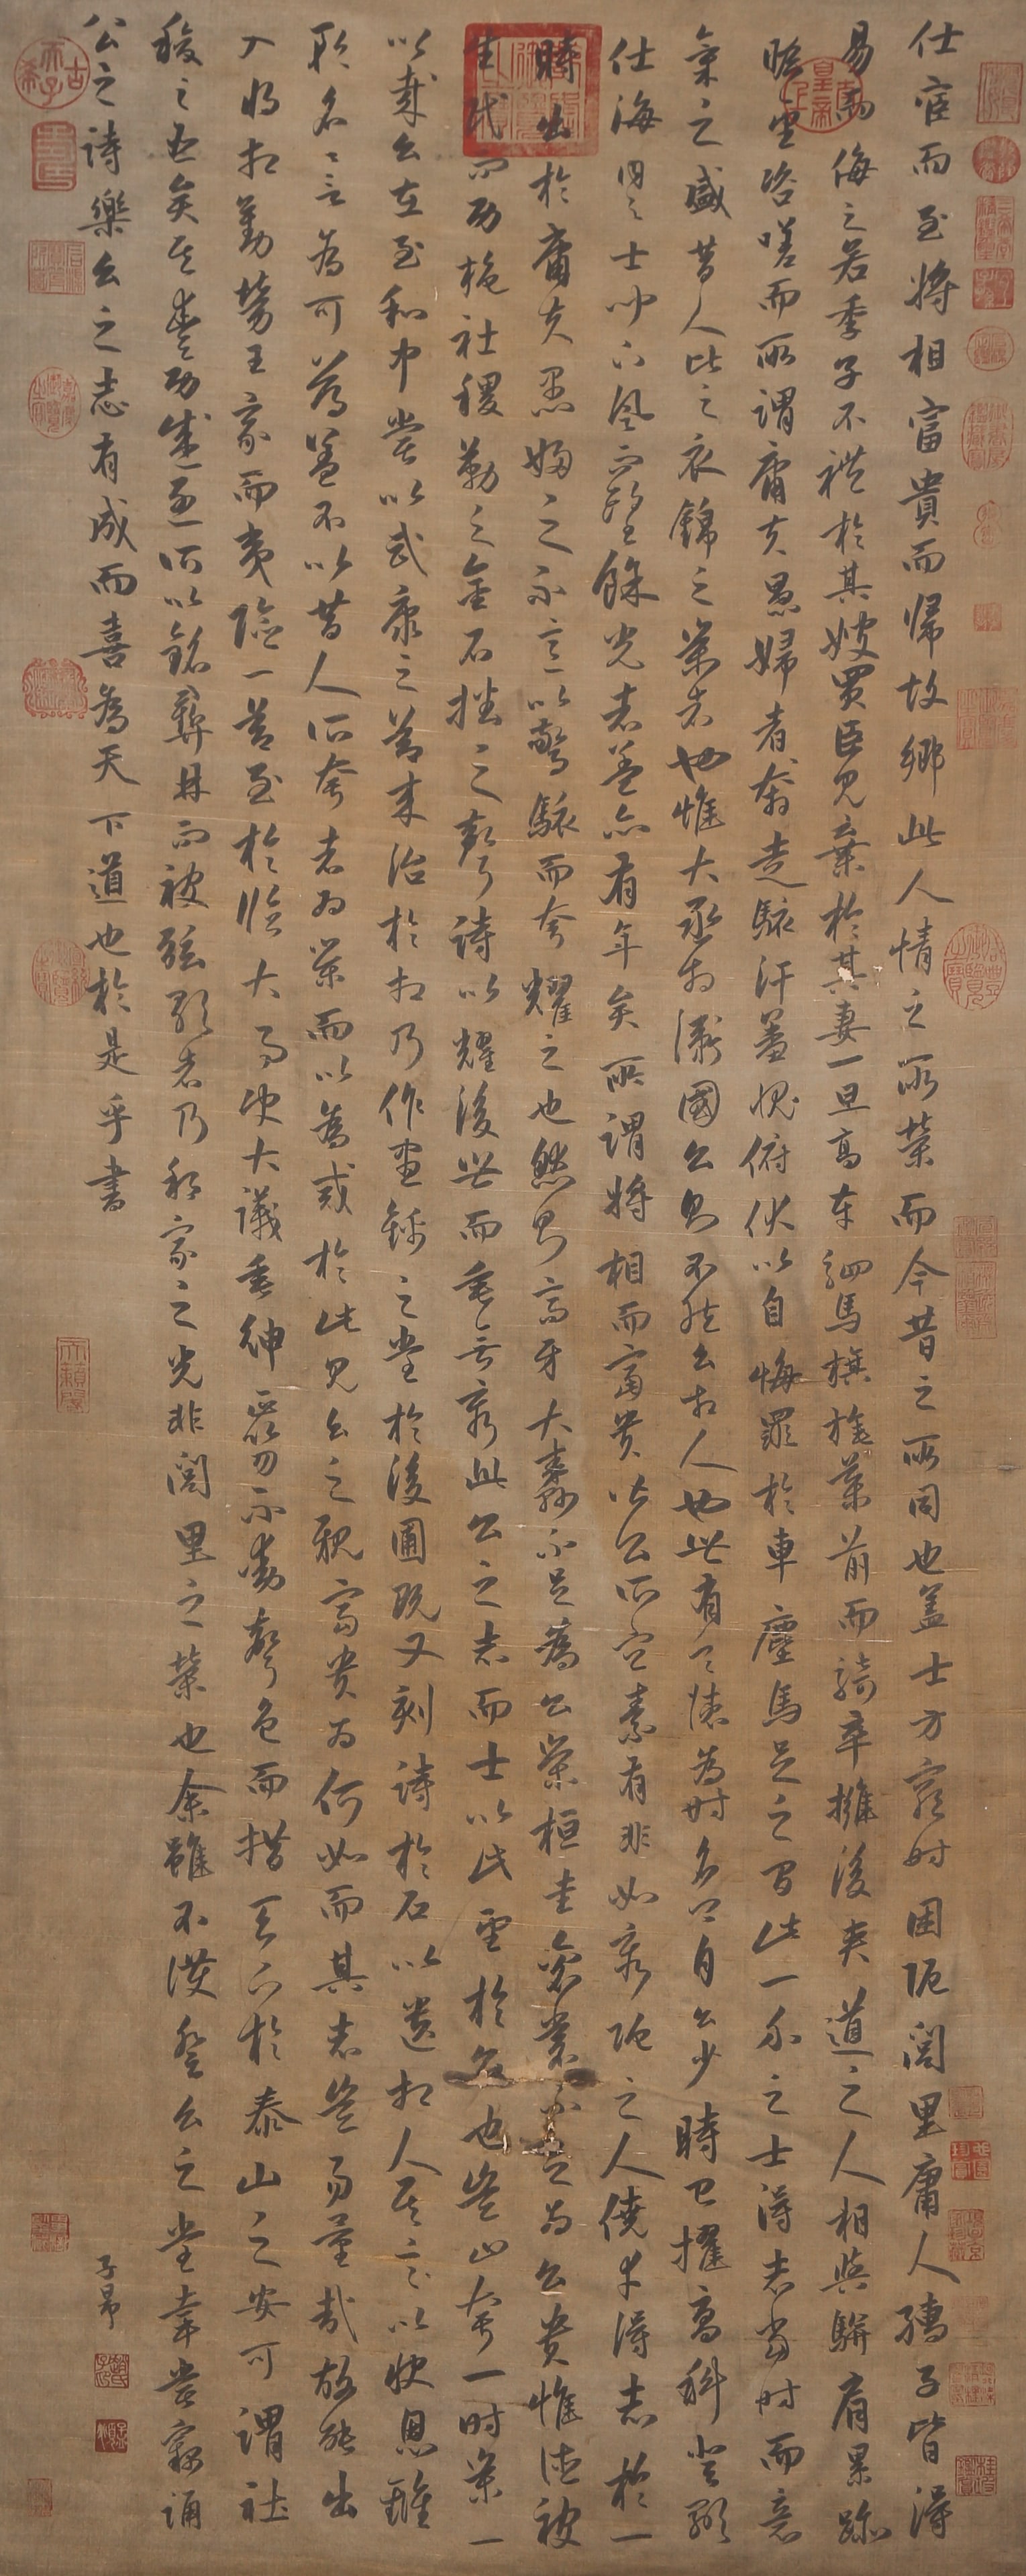 仕宦而至將相富貴而歸故鄉此人情之所榮而今昔之所同也蓋士方窮時困阨閭里庸人孺子皆得
易而侮之若季子不禮於其嫂買臣見棄於其妻一旦高車駟馬旗旄導前而騎卒擁後夾道之人相與駢肩累跡
瞻望咨嗟而所謂庸夫愚婦者奔走駭汗羞愧俯伏以自悔罪於車塵馬足之間此一介之士得志當時而意
氣之盛昔人比之衣錦之榮者也惟大丞相衛國公則不然公相人也世有令德為時名公自公少時已擢高科登顯
仕海內之士聞下風而望餘光者蓋亦有年矣所謂將相而富貴皆公所宜素有非如窮阨之人僥倖得志於一
時出於庸夫愚婦之不意以驚駭而夸耀之也然則高牙大纛不足為公榮桓圭袞裳不足為公貴惟德被
生民而功施社稷勒之金石播之聲詩以耀後世而垂無窮此公之志而士以此望於公也豈止夸一時榮一
鄉哉公在至和中嘗以武康之節來治於相乃作晝錦之堂於後圃既又刻詩於石以遺相人其言以快恩讎
矜名譽為可薄蓋不以昔人所夸者為榮而以為戒於此見公之視富貴為何如而其志豈易量哉故能出
入將相勤勞王家而夷險一節至於臨大事決大議垂紳正笏不動聲色而措天下於泰山之安可謂社
稷之臣矣其豐功盛烈所以銘彝鼎而被弦歌者乃邦家之光非閭里之榮也余雖不獲登公之堂幸嘗竊誦
公之詩樂公之志有成而喜為天下道也於是乎書
子昂